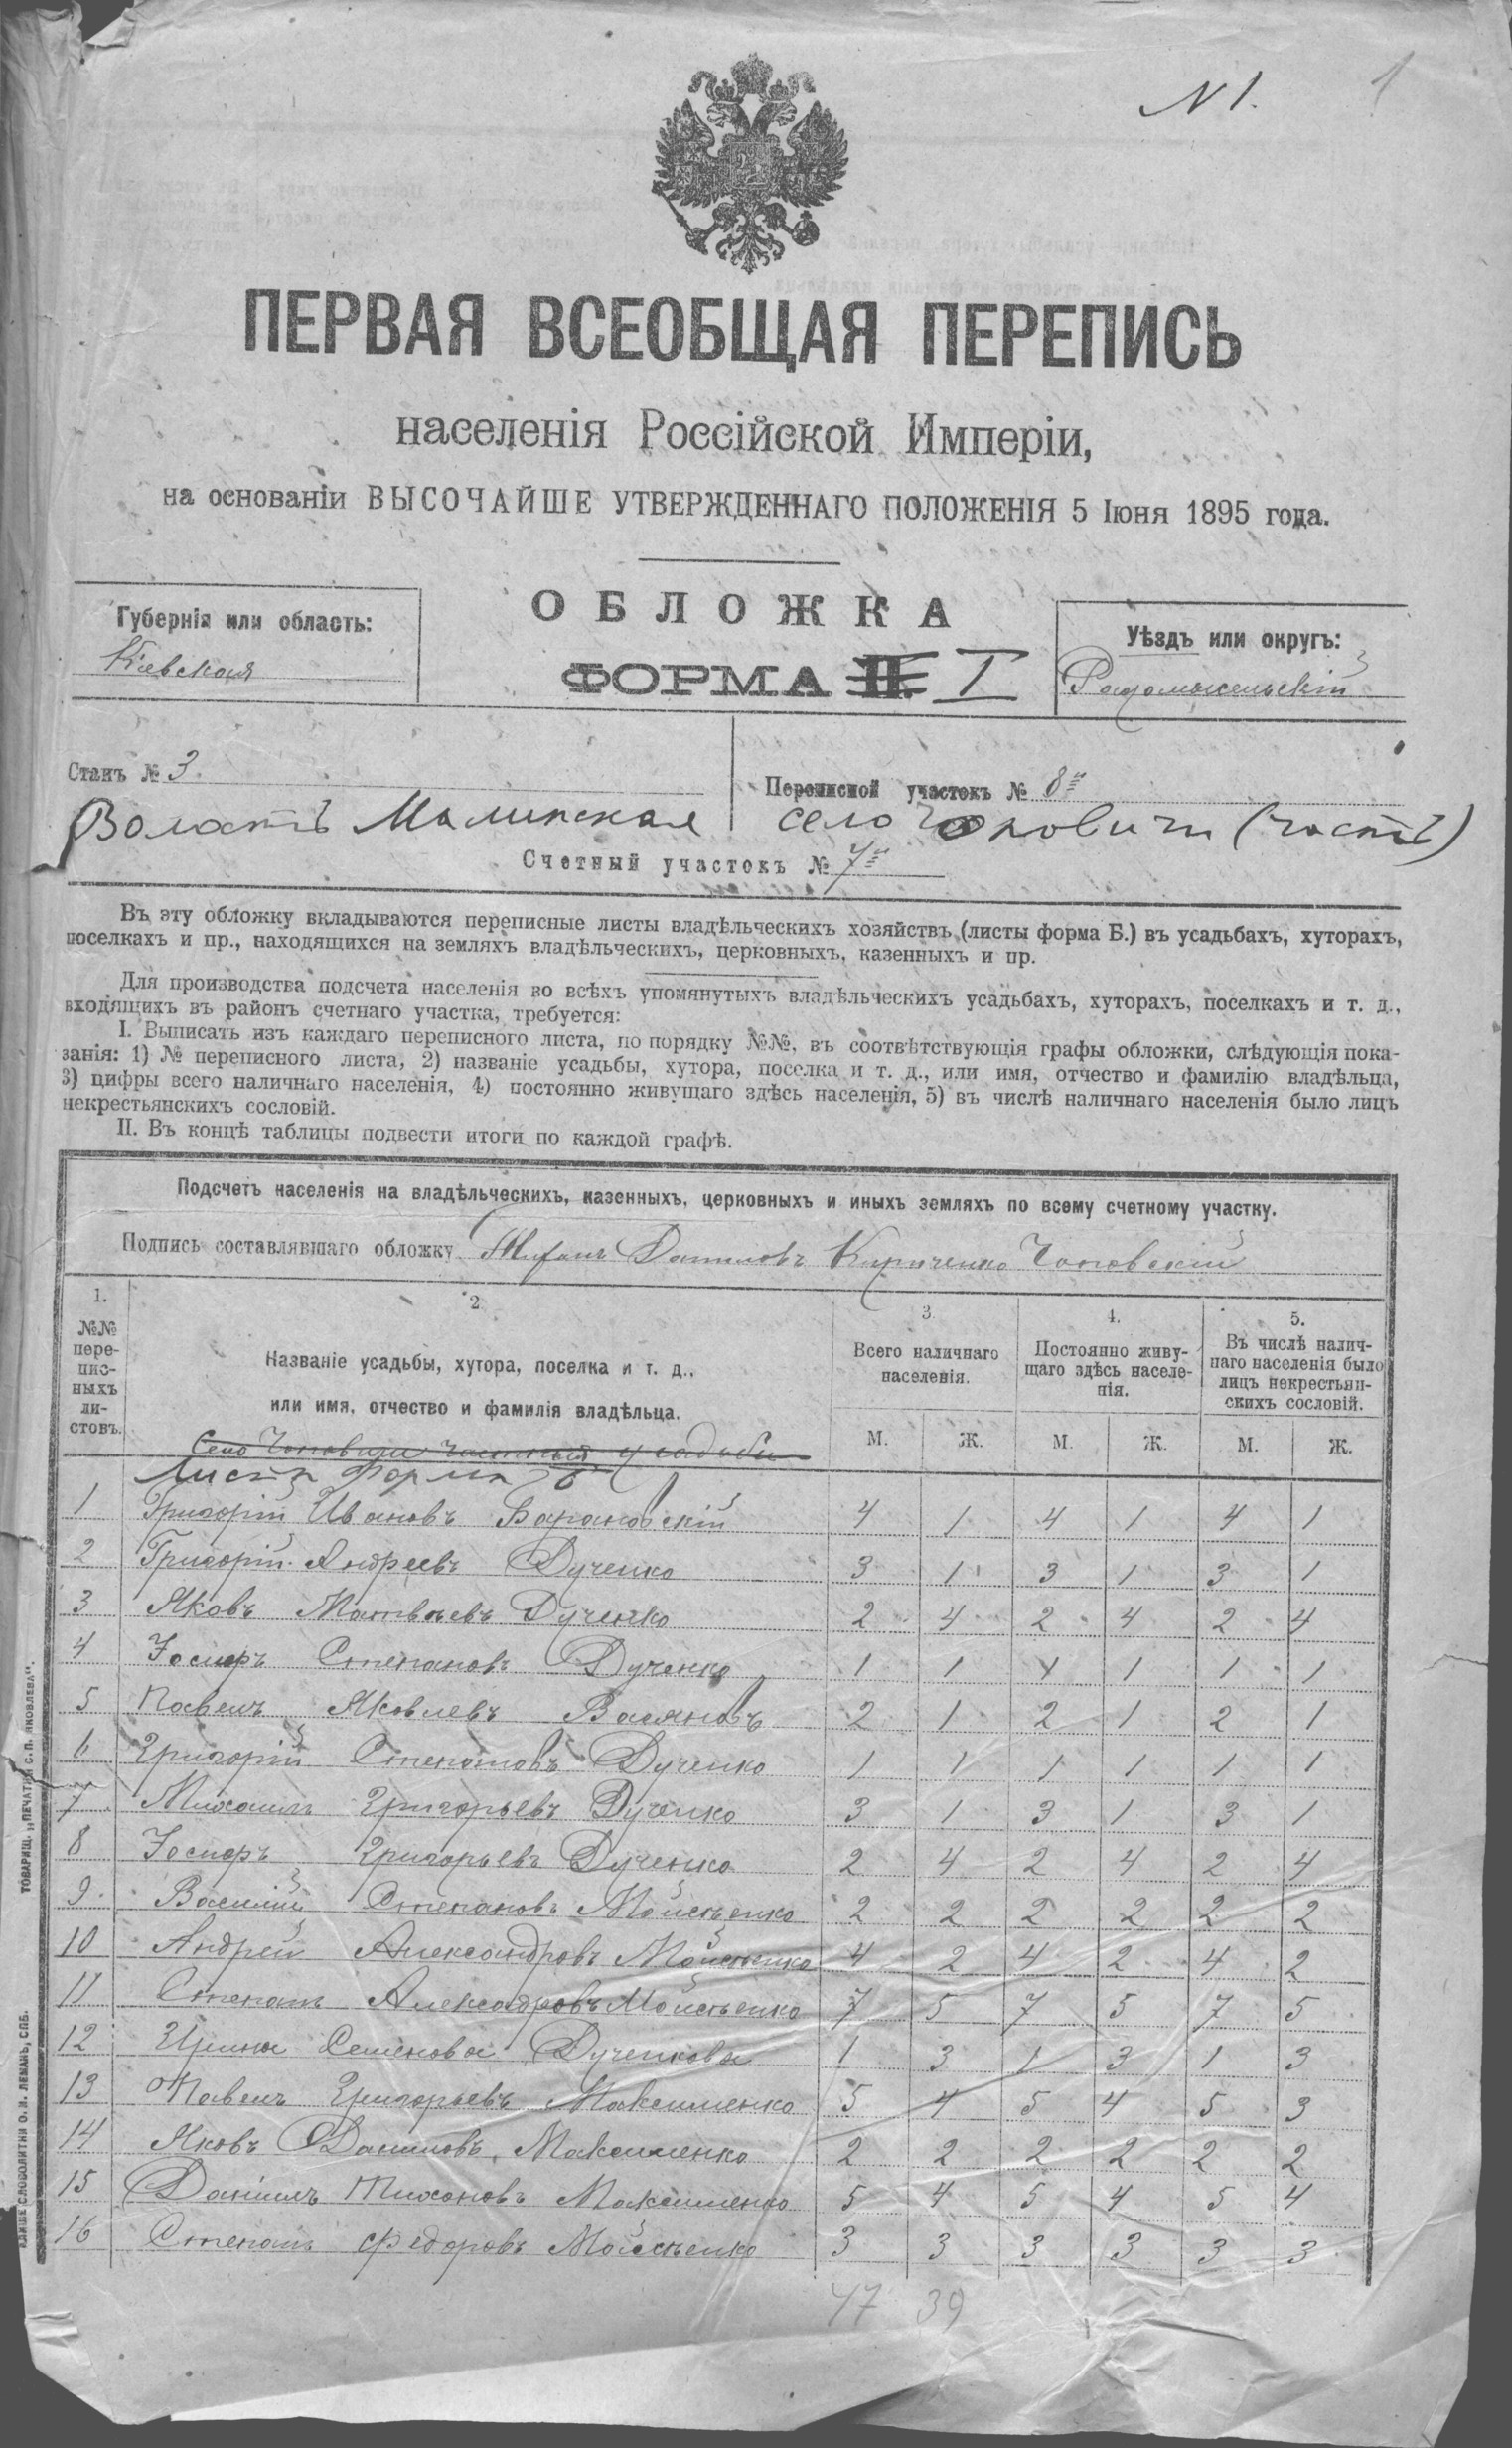 N 1.
1
ПЕРВАЯ ВСЕОБЩАЯ ПЕРЕПИСЬ
населенія Россійской Имперіи,
на основаніи ВЫСОЧАЙШЕ УТВЕРЖДЕННАГО ПОЛОЖЕНІЯ 5 Іюня 1895 года.
ОБЛОЖКА
Губернія или область:
Кіевская
ФОРМА II. I
Уѣздъ или округъ:
Радомысльскій
Станъ № 3.
Переписной участокъ № 8й
Волость Малинская село Чоповичи (часть)
Счетный участокъ № 7й
Въ эту обложку вкладываются переписные листы владѣльческихъ хозяйствъ (листы форма Б.) въ усадьбахъ, хуторахъ,
поселкахъ и пр., находящихся на земляхъ владѣльческихъ, церковныхъ, казенныхъ и пр.
Для производства подсчета населенія во всѣхъ упомянутыхъ владѣльческихъ усадьбахъ, хуторахъ, поселкахъ и т. д.,
входящихъ въ районъ счетнаго участка, требуется:
I. Выписать изъ каждаго переписного листа, по порядку №№, въ соотвѣтствующія графы обложки, слѣдующія пока-
занія: 1) № переписного листа, 2) названіе усадьбы, хутора, поселка и т. д., или имя, отчество и фамилію владѣльца,
3) цифры всего наличнаго населенія, 4) постоянно живущаго здѣсь населенія, 5) въ числѣ наличнаго населенія было лицъ
некрестьянскихъ сословій.
II. Въ концѣ таблицы подвести итоги по каждой графѣ.
Подсчетъ населенія на владѣльческихъ, казенныхъ, церковныхъ и иныхъ земляхъ по всему счетному участку.
Подпись составлявшаго обложку Данилов Кириченко Чоповскій
1.
№№
пере-
пис-
ныхъ
ли-
стовъ.
2
Названіе усадьбы, хутора, поселка и т. д.,
или имя, отчество и фамилія владѣльца.
3.
Всего наличнаго
населенія.
4.
Постоянно живу-
щаго здѣсь населе-
нія.
5.
Въ числѣ налич-
наго населенія было
лицъ некрестьян-
скихъ сословій.
М. Ж. М. Ж. М. Ж.
Село Чоповичи частныя усадьбы
Листы форма Б
1 Григорій Ивановъ Барановскій 4 1 4 1 4 1
2 Григорій Андреевъ Дученко 3 1 3 1 3 1
3 Яковъ Матвѣевъ Дученко 2 4 2 4 2 4
4 Іосифъ Степановъ Дученко 1 1 1 1 1 1
5 Павелъ Яковлевъ Васяновъ 2 1 2 1 2 1
6 Григорій Степановъ Дученко 1 1 1 1 1 1
7 Михаилъ Григорьевъ Дученко 3 1 3 1 3 1
8 Іосифъ Григорьевъ Дученко 2 4 2 4 2 4
9. Василій Степановъ Мойсѣенко 2 2 2 2 2 2
10 Андрей Александровъ Мойсѣенко 4 2 4 2 4 2
11 Степанъ Александровъ Мойсѣенко 7 5 7 5 7 5
12 Ирина Семенова Дученкова 1 3 1 3 1 3
13 Павелъ Григорьевъ Максименко 5 4 5 4 5 3
14 Яковъ Даниловъ Максименко 2 2 2 2 2 2
15 Даніилъ Тихоновъ Максименко 5 4 5 4 5 4
16 Степанъ Федоровъ Мойсѣенко 3 3 3 3 3 3
47 39
ТОВАРИЩ. „ПЕЧАТНЯ С.П. ЯКОВЛЕВА".
КЛИШЕ СЛОВОЛИТНИ О.И. ЛЕМАНЪ, СПБ.